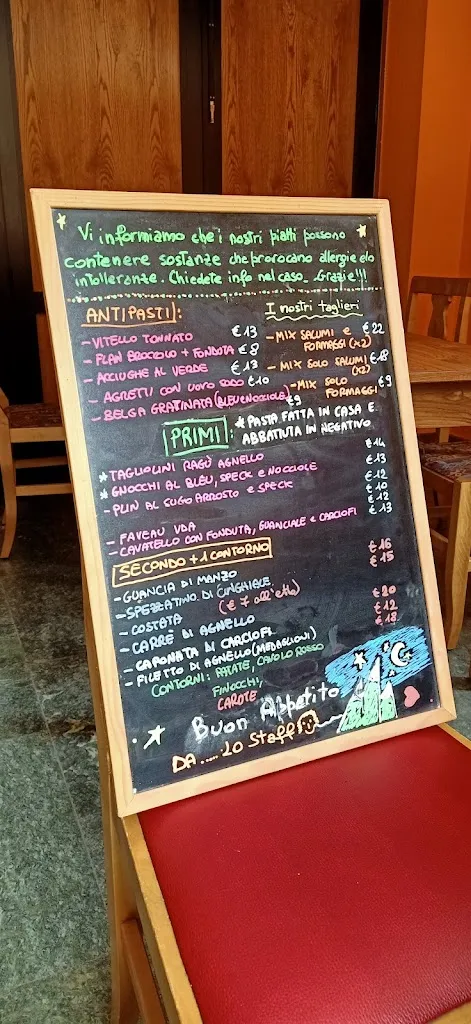 Vi informiamo che i nostri piatti possono
contenere sostanze che provocano allergie e/o
intolleranze. Chiedete info nel caso. Grazie!!!
ANTIPASTI:
- VITELLO TONNATO €13
- FLAN BROCCOLO + FONDUTA €8
- ACCIUGHE AL VERDE €13
- AGRETTI CON UOVO SODO €10
- BELGA GRATINATA (BLEU E NOCCIOLE) €9
I nostri taglieri
- MIX SALUMI E €22
FORMAGGI (x2)
- MIX SOLO SALUMI €18
(x2)
- MIX SOLO €9
FORMAGGI
PRIMI: * PASTA FATTA IN CASA E
ABBATTUTA IN NEGATIVO
* TAGLIOLINI RAGÙ AGNELLO €14
* GNOCCHI AL BLEU, SPECK E NOCCIOLE €13
- PLIN AL SUGO ARROSTO E SPECK €12
€10
- FAVEAU VDA €12
- CAVATELLO CON FONDUTA, GUANCIALE E CARCIOFI €13
SECONDO + 1 CONTORNO
- GUANCIA DI MANZO €16
- SPEZZATINO DI CINGHIALE €15
- COSTATA (€ 7 all'etto)
- CARRÈ DI AGNELLO €20
- CAPONATA DI CARCIOFI €12
- FILETTO DI AGNELLO (MEDAGLIONI) €18
CONTORNI: PATATE, CAVOLO ROSSO
FINOCCHI,
CAROTE
Buon Appetito
DA ..... LO Staff!